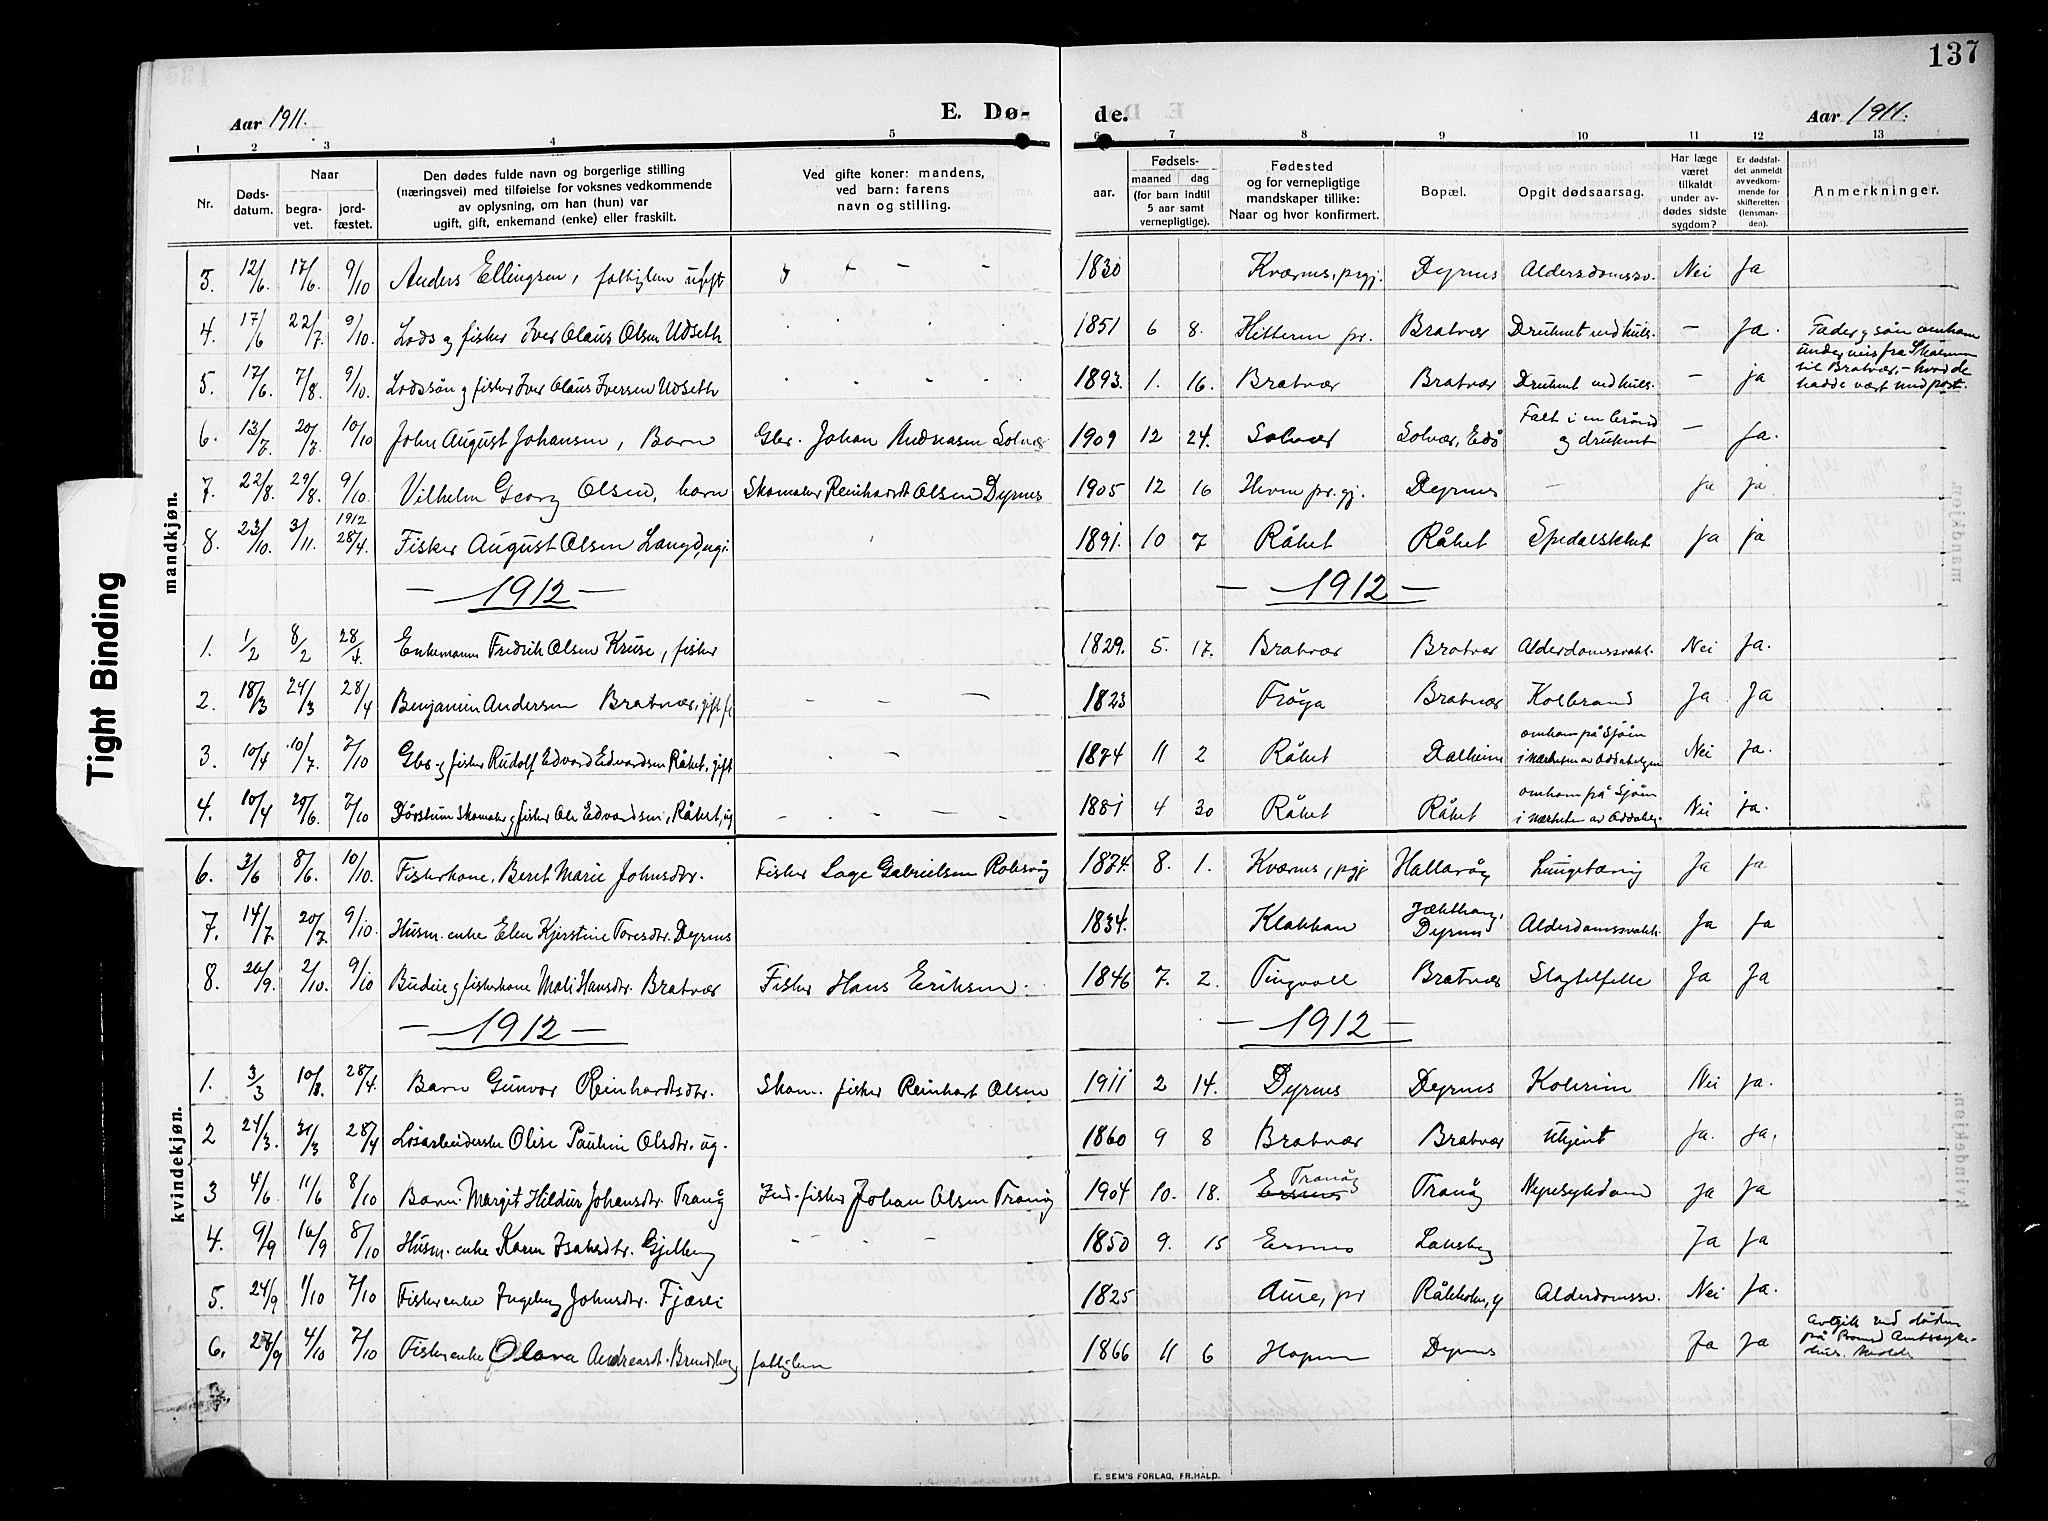 137
Aar 1911. E. Dø- de. Aar 1911.
1 2 3 4 5 6 7 8 9 10 11 12 13
Nr. Dødsdatum. Naar begravet. jordfæstet. Den dødes fulde navn og borgerlige stilling (næringsvei) med tilføielse for voksnes vedkommende av oplysning, om han (hun) var ugift, gift, enkemand (enke) eller fraskilt. Ved gifte koner: mandens, ved barn: farens navn og stilling. aar. Fødsels- maaned dag (for barn indtil 5 aar samt vernepligtige). Fødested og for vernepligtige mandskaper tillike: Naar og hvor konfirmert. Bopæl. Opgit dødsaarsag. Har læge været tilkaldt under avdødes sidste sygdom? Er dødsfaldet anmeldt av vedkommende for skifteretten (lensmanden). Anmerkninger.
mandkjøn.
3. 12/6. 17/6. 9/10 Anders Ellingsen, fattiglem ugift 1830 Kværnes, prgj. Dyrnes Aldersdomssv. Nei Ja
4. 17/6 22/7. 9/10. Lods og fisker Iver Olaus Olsen Udseth 1851 6 8. Hitteren pr. Bratvær Druknet ved hvls. – Ja. Fader og søn omkom
5. 17/6. 7/8. 9/10. Lodssøn og fisker Iver Olaus Iversen Udseth 1893. 1. 16. Bratvær Bratvær Druknet ved hvls. – ja underveis fra til Bratvær, – hvor de hadde vært med post.
6. 13/7. 20/7. 10/10 John August Johansen, Barn Gbr. Johan Andreasen Solvær 1909 12 24. Solvær Solvær, Edø Falt i en brønd og druknet – Ja.
7. 22/8. 29/8. 9/10. Vilhelm Georg Olsen, barn Skomaker Reinhardt Olsen Dyrnes 1905 12 16 Heven pr.gj. Dyrnes – Ja ja
8. 23/10. 3/11. 1912 28/4. Fisker August Olsen Langø, ugi. 1891. 10 7 Råket Råket Spedalskhet Ja ja
– 1912 – – 1912 –
1. 1/2 8/2 28/4. Enkemann Fredrik Olsen Kruse, fisker 1829. 5. 17. Bratvær Bratvær Alderdomssvakh. Nei Ja.
2. 18/3 24/3 28/4 Benjamin Andersen Bratvær, gift 1823 Frøya Bratvær Kolbrand Ja Ja
3. 10/4 10/7. 7/10 Gbr. og fisker Rudolf Edvard Edvardsen Råket, gift 1874 11 2 Råket Dalheim omkom på Sjøen i nærheten av Nei ja.
4. 10/4 29/6. 7/10 Døvstum Skomaker og fisker Ole Edvardsen, Råket, ug 1881 4 30 Råket Råket omkom på Sjøen i nærheten av Nei ja.
kvindekjøn.
6. 3/6 8/6. 10/10. Fiskerkone, Beret Marie Johnsdtr. Fisker Lage Gabrielsen Roksvåg 1874. 8. 1. Kværnes, pgj Hallarøy Lungetæring Ja ja
7. 14/7. 20/7. 9/10. Husm. enke Elen Kjerstine Toresdtr. Dyrnes 1834. Klakken Dyrnes Alderdomssvakh. Ja Ja
8. 26/9. 2/10. 9/10 Budeie og fiskerkone Mali Hansdtr. Bratvær Fisker Hans Eriksen. 1846 7. 2. Tingvoll Bratvær Slagtilfelle Ja Ja
– 1912 – – 1912 –
1. 3/3 10/3. 28/4. Barn Gunvor Reinhardtsdtr. Skom. fisker Reinhart Olsen 1911 2 14. Dyrnes Dyrnes Kolerine Nei ja.
2 24/3. 31/3 28/4 Løsarbeiderske Olise Pauline Olsdtr. ug. 1860 9 8 Bratvær Bratvær Ukjent Ja. Ja.
3 4/6. 11/6 8/10 Barn. Margit Hildur Johansdtr. Tranøy Ind. fisker Johan Olsen Tranøy 1904 10. 18. Tranøy Tranøy Nyresykdom Ja Ja
4. 9/9 16/9 8/10 Husm. enke Karen Isaksdtr. Gjelberg 1850 9. 15 Laksberg Ja Ja
5. 24/9 1/10 7/10 Fisker enke Ingeborg Johnsdtr. Fjæsli 1825 Aure, pr Råkholm, Alderdomssv. Nei Ja.
6. 27/9 4/10 7/10 Fisker enke, Olava Andreasdt. fattiglem 1866 11 6 Hopen Dyrnes Ja Ja Avgik ved døden på Romsd. Amtssykehus. Molde
E. SEM'S FORLAG, FR.HALD.
Tight Binding